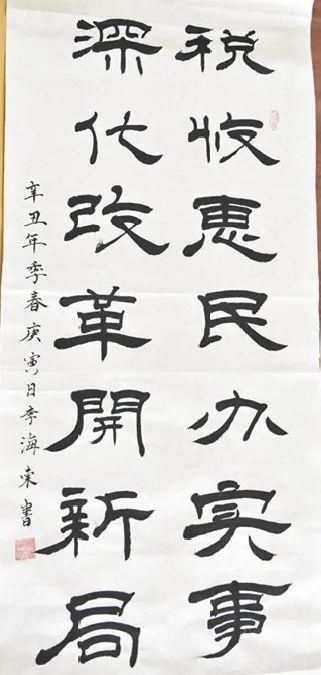 税收惠民办实事
深化改革開新局
辛丑年季春庚寅日李海东書